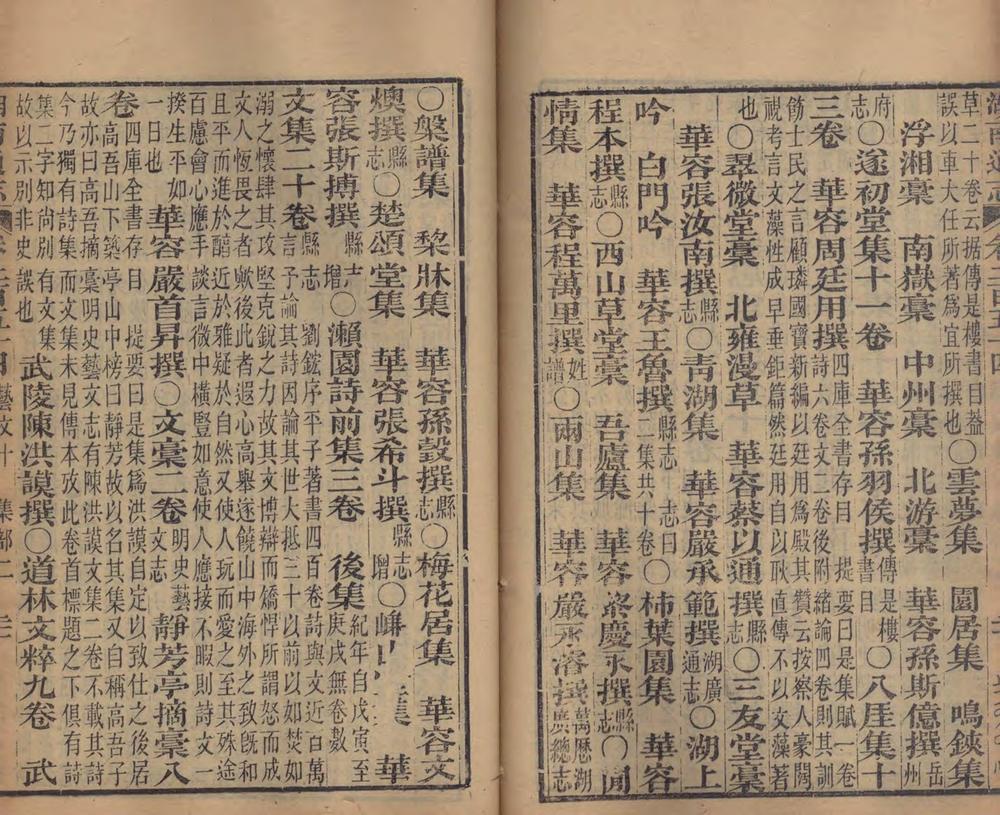 草二十卷云据傳是樓書目蓋
誤以車大任所著爲宜所撰也○雲夢集　園居集　鳴鋏集
浮湘稾　南嶽稾　中州稾　北游稾　華容孫斯億撰岳州
府志○遂初堂集十一卷　華容孫羽侯撰傳是樓書目○八厓集十
三卷　華容周廷用撰四庫全書存目　提要曰是集賦一卷
詩六卷文二卷後附緒論四卷則其訓
飭士民之言顧璘國寶新編以廷用爲殿其贊云按察人豪閎
視考言文藻性成早垂鉅篇然廷用自以耿直傳不以文藻著
也○翠微堂稾　北雍漫草　華容蔡以通撰縣志○三友堂稾
華容張汝南撰縣志○靑湖集　華容嚴承範撰湖廣通志○湖上
吟　白門吟　華容王魯撰縣志　志曰二集共十卷○柿葉園集　華容
程本撰縣志○西山草堂稾　吾廬集　華容黎慶永撰縣志○閒
情集　華容程萬里撰姓譜○兩山集　華容嚴永濬撰萬厯湖廣總志
○槃譜集　犂牀集　華容孫瑴撰縣志○梅花居集　華容文
燠撰縣志○楚頌堂集　華容張希斗撰縣志增○集　華
容張斯搏撰縣志增○瀨園詩前集三卷　後集紀年自戊寅至庚戌無卷數
文集二十卷縣志　劉鋐序平子著書四百卷詩與文近百萬
言予論其詩因論其世大抵三十以前以如焚如
溺之懷肆其攻堅克銳之力故其文博辯而矯悍所謂怒而成
文人恆畏之者嗽後此者遐心高舉遂饒山中海外之致旣和
且平而進於醇近於雅疑於自然又使人玩而愛之至其殊途
百慮會心應手談言微中橫豎如意使人應接不暇則詩文一
揆生平如一日也　華容嚴首昇撰○文稾二卷明史藝文志　靜芳亭摘稾八
卷四庫全書存目　提要曰是集爲洪謨自定以致仕之後居
高吾山下築亭山中榜曰靜芳故以名其集又自稱高吾子
故亦曰高吾摘稾明史藝文志有陳洪謨文集二卷不載其詩
今乃獨有詩集而文集未見傳本攷此卷首標題之下俱有詩
集二字知尚別有文集
故以示別非史誤也　武陵陳洪謨撰○道林文粹九卷　武
藝文十　集部二